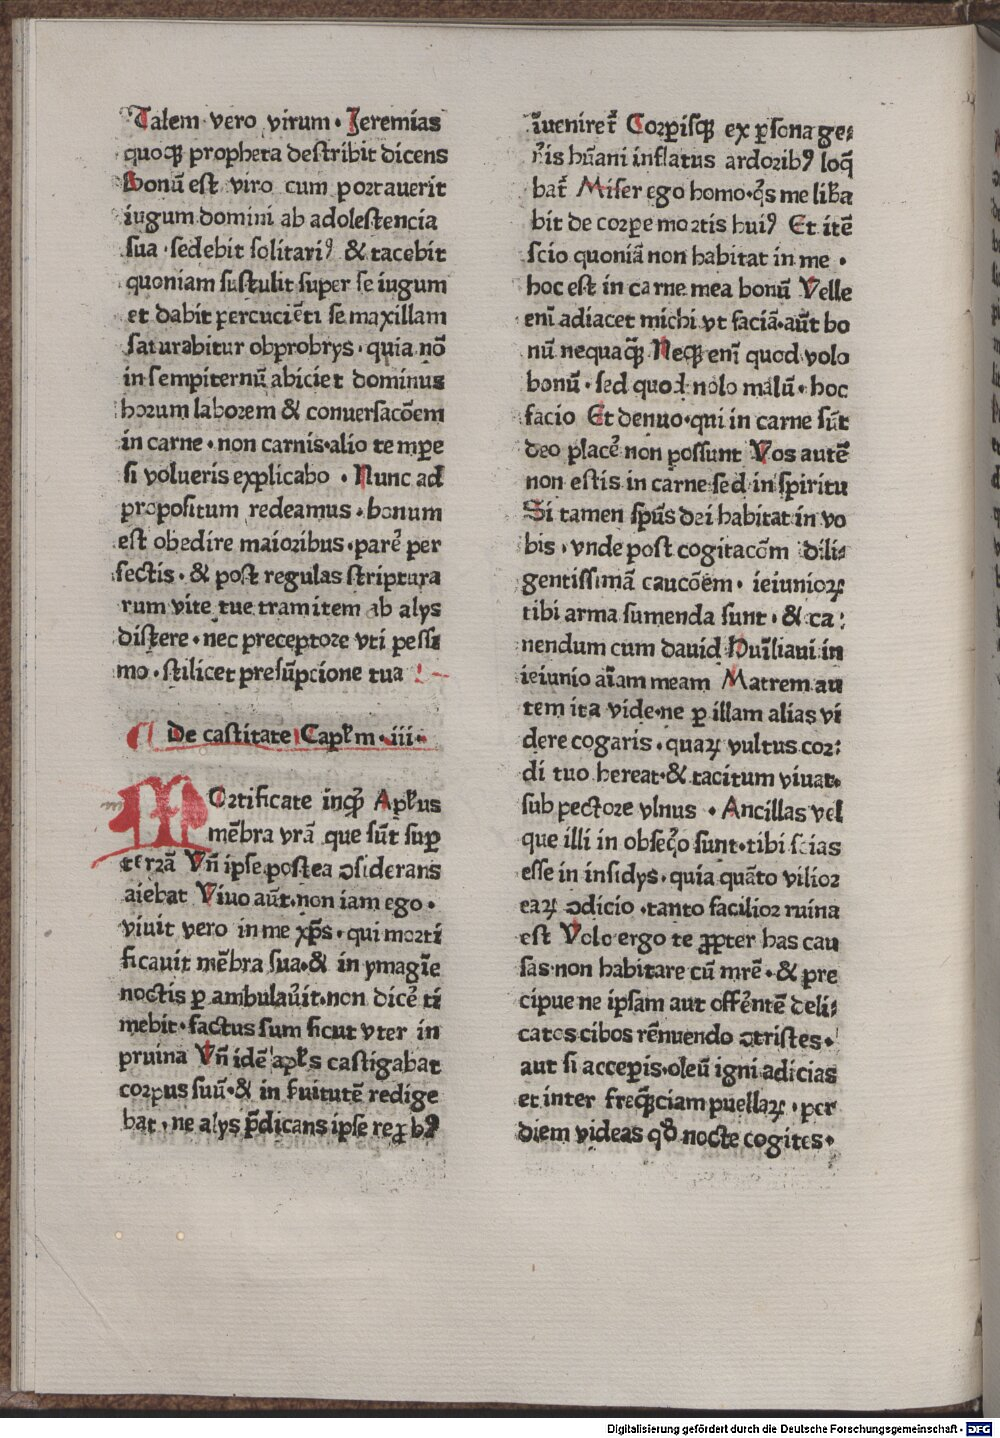 Talem vero virum · Jeremias
quoqꝫ propheta destribit dicens
Bonū est viro cum portauerit
iugum domini ab adolestencia
sua · sedebit solitariꝰ & tacebit
quoniam sustulit super se iugum
et dabit percuciēti se maxillam
saturabitur obprobrys · quia nō
in sempiternū abiciet dominus
horum laborem & conuersacōem
in carne · non carnis · alio tempe
si volueris explicabo · Nunc ad
propositum redeamus · bonum
est obedire maioribus · parē per
fectis · & post regulas striptura
rum vite tue tramitem ab alys
distere · nec preceptore vti pessi
mo · stilicet presūpcione tua
De castitate Caplm · iii ·
MOrtificate inqꝫ Aplus
mēbra vrā que sūt sup
terrā Vn̄ ipse postea ↄsiderans
aiebat Viuo aūt · non iam ego ·
viuit vero in me xp̄s · qui morti
ficauit mēbra sua · & in ymagīe
noctis ꝑambulauīt · non dicēt ti
mebit · factus sum sicut vter in
pruina Vn̄ idē apls castigabat
corpus suū · & in seruitutē redige
bat · ne alys p̄dicans ipse reprobꝰ
īueniret̄ Corpisqꝫ ex ꝑsona ge⸗
rīs hūani inflatus ardoribꝰ loq̄
bat̄ Miser ego homo · q̄s me liba
bit de corpe mortis huiꝰ Et itē
scio quoniā non habitat in me ·
hoc est in carne mea bonū Velle
enī adiacet michi vt faciā · aūt bo
nū nequaqꝫ Neqꝫ enī quod volo
bonū · sed quod nolo malū · hoc
facio Et denuo · qui in carne sūt
deo placē non possunt Vos autē
non estis in carne sed in spiritu
Si tamen spūs dei habitat in vo
bis · vnde post cogitacōm dili⸗
gentissimā caucōem · ieiunioꝝ
tibi arma sumenda sunt · & ca⸗
nendum cum dauid Huīliaui in
ieiunio aīam meam Matrem au
tem ita vide · ne ꝑ illam alias vi
dere cogaris · quaꝝ vultus cor⸗
di tuo hereat · & tacitum viuat ·
sub pectore vlnus · Ancillas vel
que illi in obseq̄o sunt · tibi scias
esse in insidys · quia quāto vilior
eaꝝ ↄdicio · tanto facilior ruina
est Volo ergo te ꝓpter has cau
sas · non habitare cū mrē · & pre
cipue ne ipsam aut offēntē deli⸗
catos cibos rēnuendo ↄtristes ·
aut si acceperis · oleū igni adicias
et inter freqꝫciam puellaꝝ · per
diem videas qd̄ nocte cogites ·
Digitalisierung gefördert durch die Deutsche Forschungsgemeinschaft - DFG